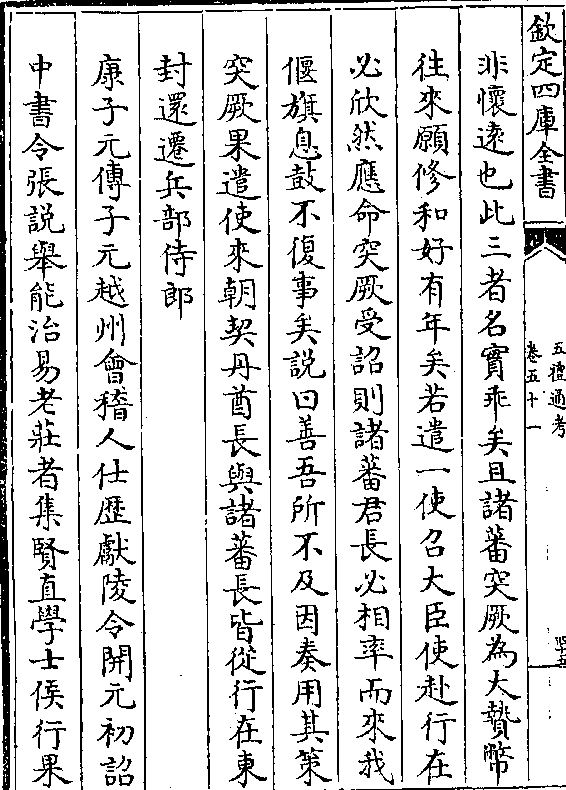 欽定四庫全書
五禮通考
卷五十一
非懷遠也此三者名實乖矣且諸蕃突厥為大贄幣
往來願修和好有年矣若遣一使召大臣使赴行在
必欣然應命突厥受詔則諸蕃君長必相率而來我
偃旗息鼓不復事矣説曰善吾所不及因奏用其策
突厥果遣使來朝契丹酋長與諸蕃長皆從行在東
封還遷兵部侍郎
康子元傳子元越州會稽人仕歴獻陵令開元初詔
中書令張説舉能治易老莊者集賢直學士侯行果